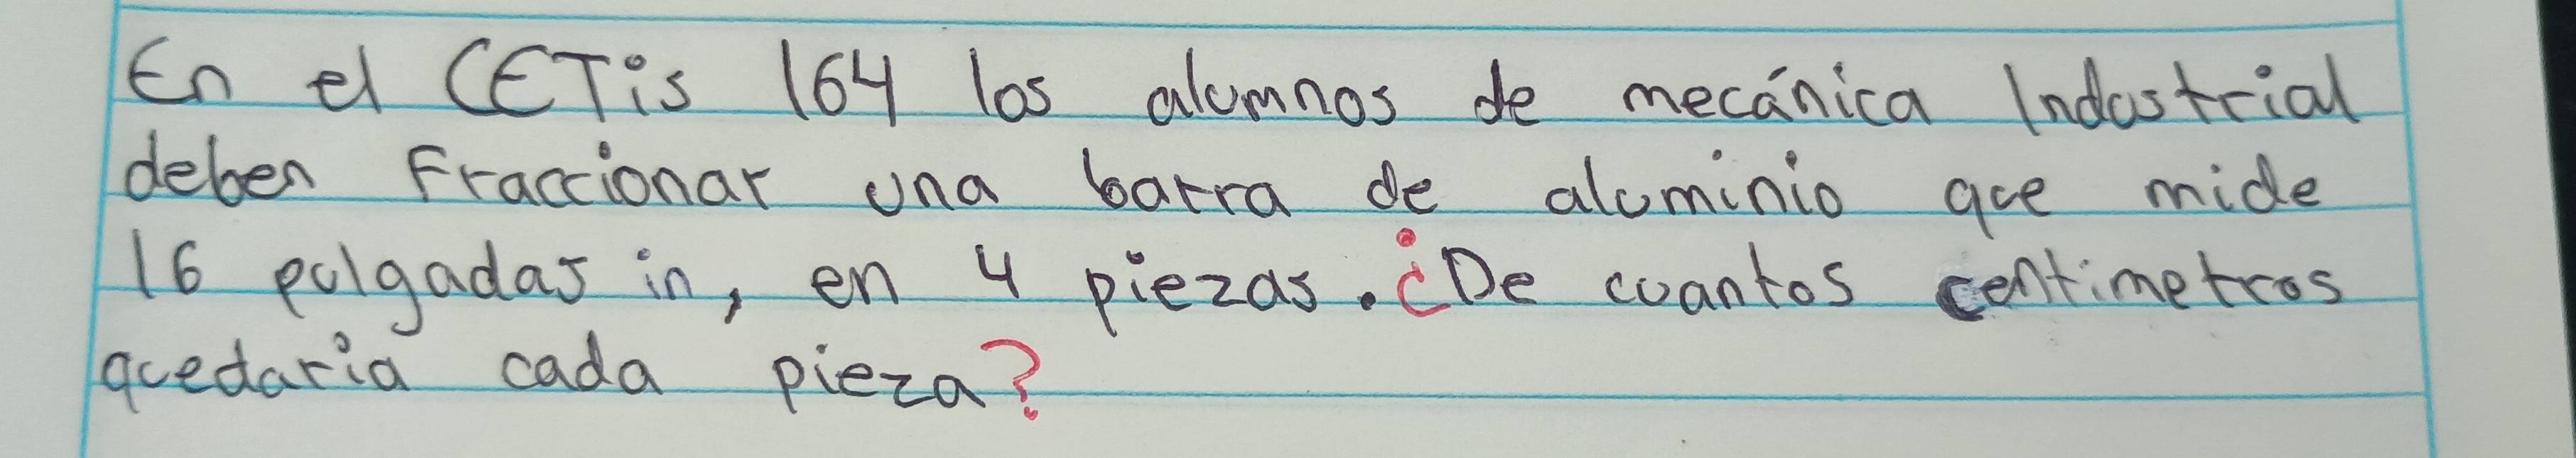 En el CETis 164 los alumnos de mecánica Industrial
deben Fraccionar una barra de aluminio que mide
16 pulgadas in, en 4 piezas. ¿De cuantos centimetros
quedaria cada pieza?